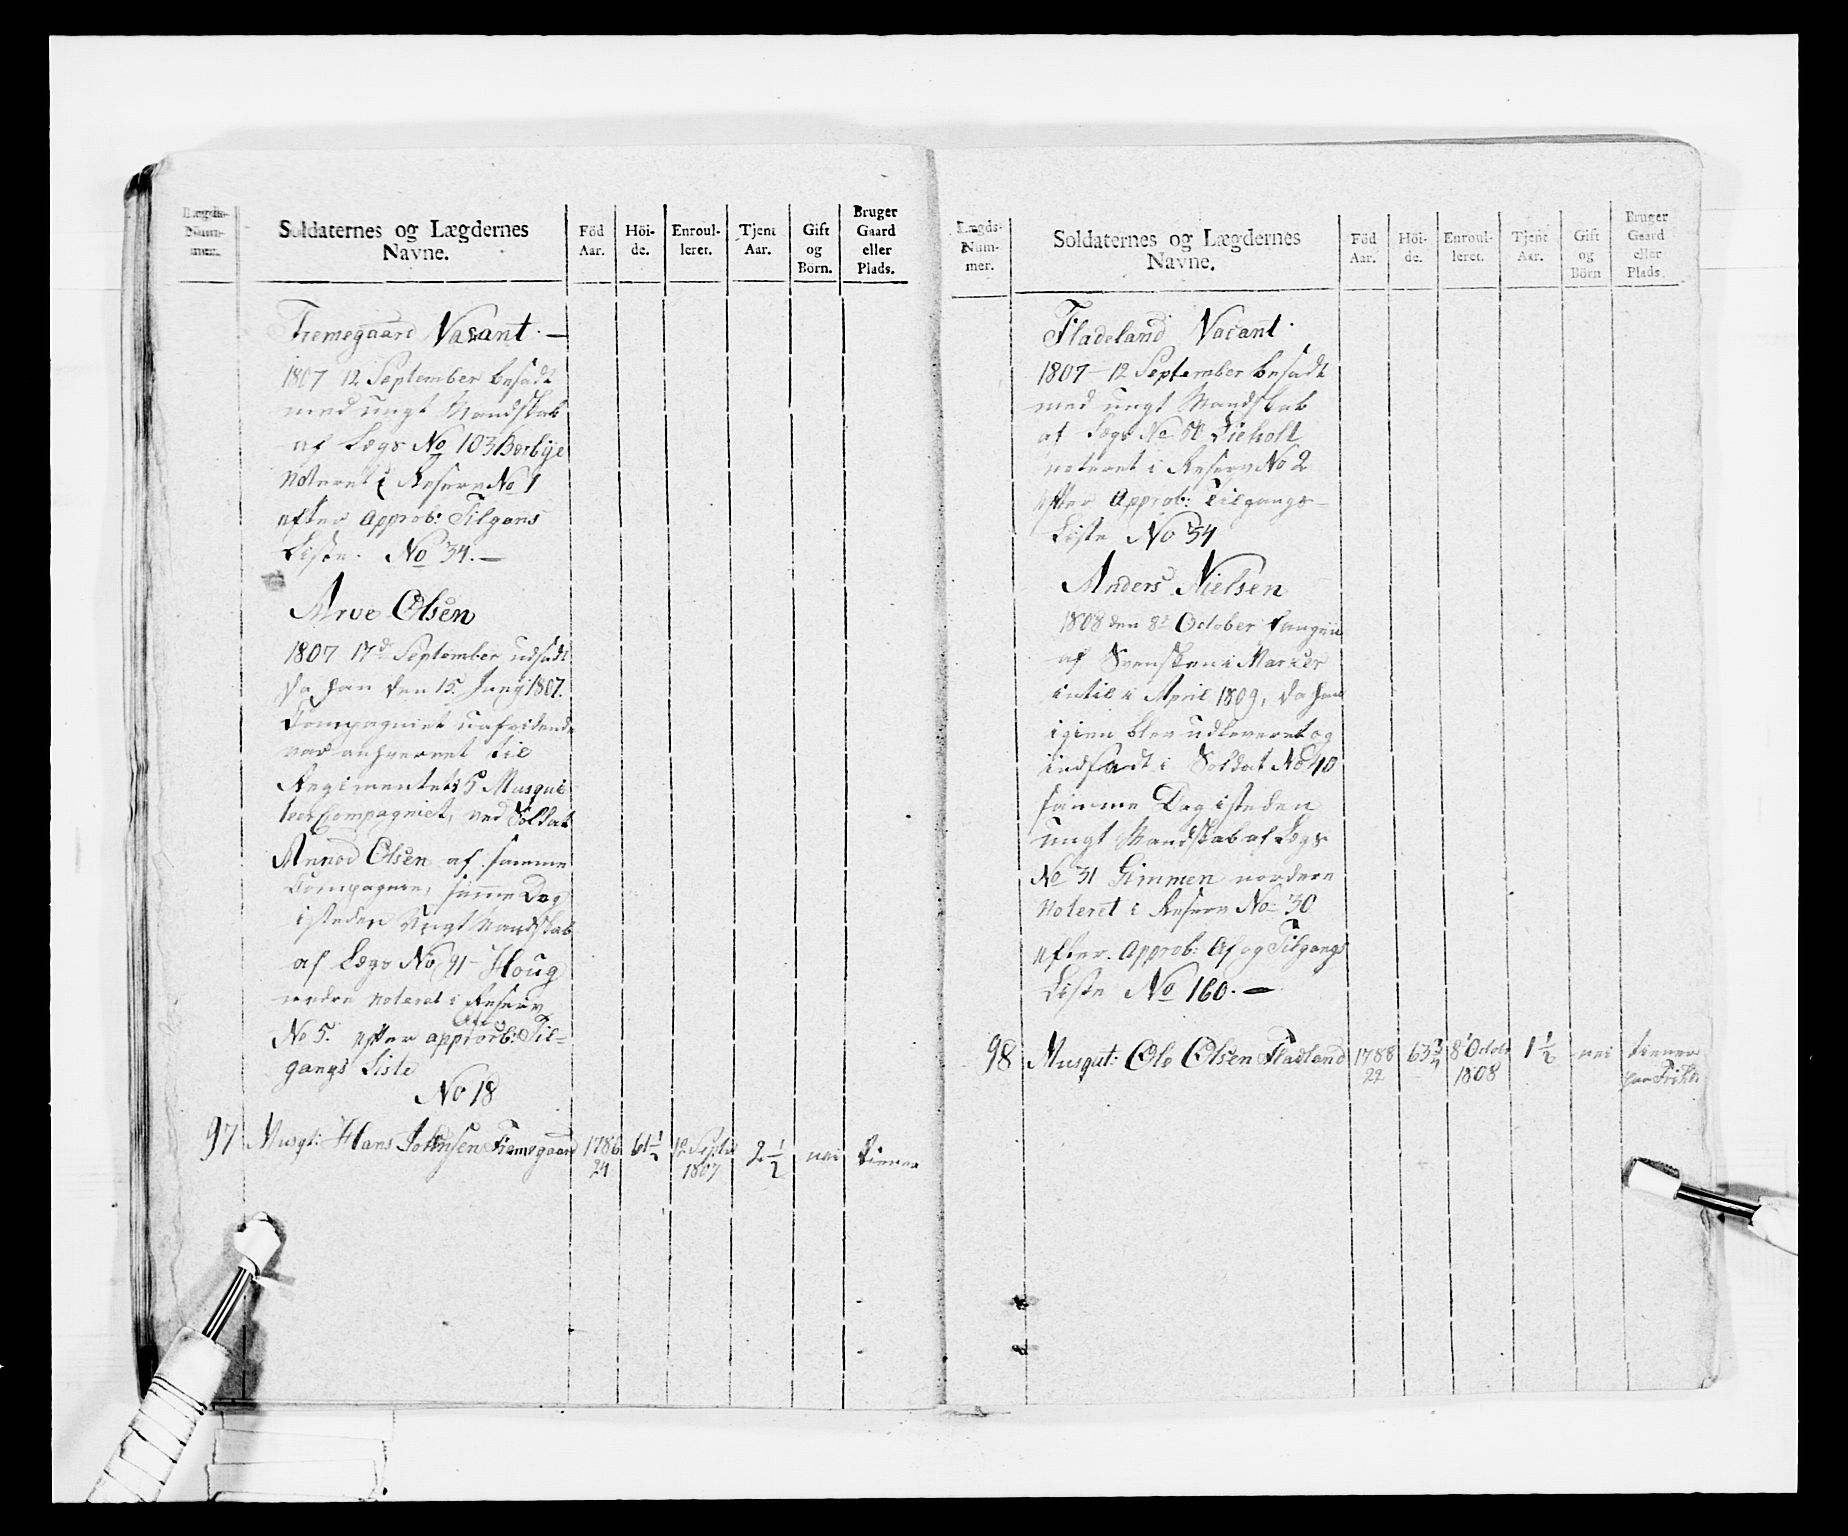 Lægds-
Num-
mer.
Soldaternes og Lægdernes
Navne.
Föd
Aar.
Höi-
de.
Enroul-
leret.
Tjent
Aar.
Gift
og
Börn.
Bruger
Gaard
eller
Plads.
Fremegaard Vacant. —
1807 12 September besadt
med ungt Mandskab
af Lægs No 103 Berbye
Noteret i Reserv No 1
efter Approb: Tilgans
Liste. No 34. —
Arve Olsen
1807 17d September udsadt
da han den 15 Juny 1807.
Compagniet uafvidende
var anhvervet til
Regimentets 5 Musque
teer Compagniet, ved Soldat
Annod Olsen af samme
Compagnie, samme Dag
isteden Ungt Mandskab
af Lægs No 91 Houg
nedre noteret i Reserv
No 5. efter approb: Af og Til-
gangs Liste
No 18
97 Musqt: Hans Johnsen Fremegaard 1786 61 1/2 12 Septbr 2 1/2 nei tiener
24 1807
Lægds-
Num-
mer.
Soldaternes og Lægdernes
Navne.
Föd
Aar.
Höi-
de.
Enroul-
leret.
Tjent
Aar.
Gift
og
Börn
Bruger
Gaard
eller
Plads.
Fladeland Vacant.
1807 — 12 September besadt
med ungt Mandskab
af Lægs No 50 Lieholt
noteret i Reserv No 2
efter Approb: Tilgangs-
Liste No 34
Anders Nielsen
1808 den 8de October fangen
af Svensken i Marker
intil i April 1809, da han
igien blev udleveret og
indsadt i Soldat No 40
samme Dag isteden
ungt Mandskab af Lægs
No 31 Gimmen nordere
Noteret i Reserv No 30
efter Approb: Af og Tilgangs
Liste No 160. —
98 Musqut: Ole Olsen Fladland 1788 63 3/4 8 Octobr 1 1/2 nei tiener
22 1808